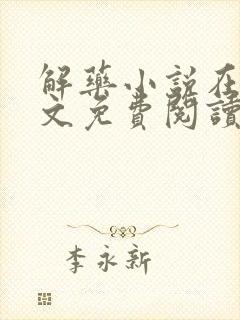 解藥小說在
文免費閱讀
李永新